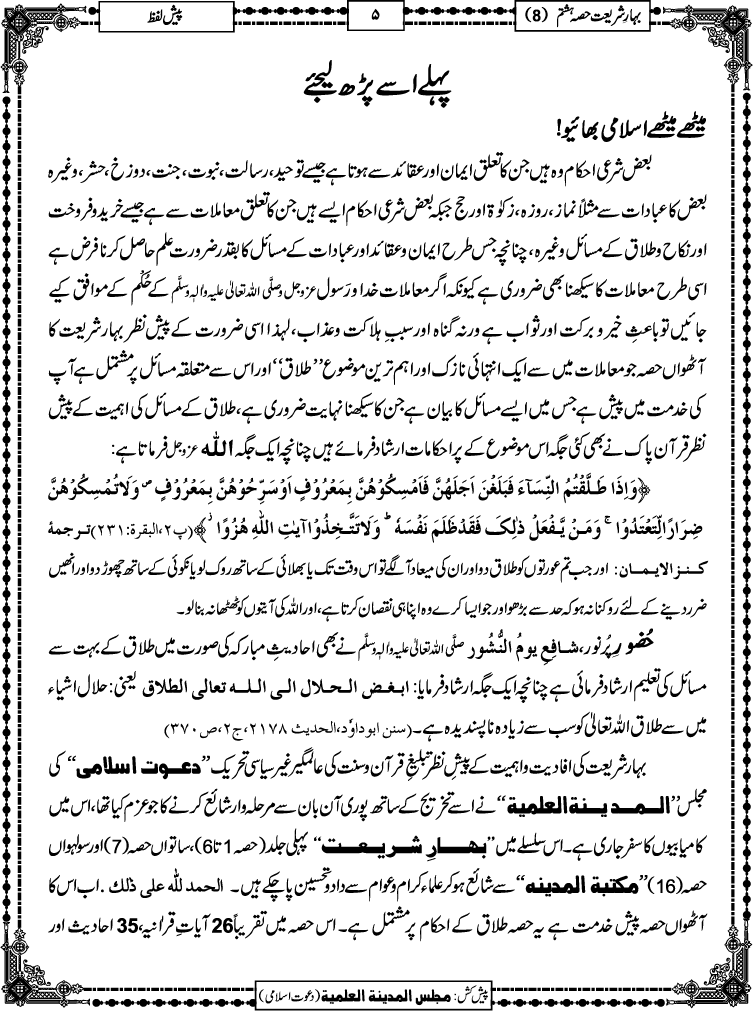 بہارِ شریعت حصہ ہشتم (8)
۵
پیش لفظ
پہلے اسے پڑھ لیجئے
میٹھے میٹھے اسلامی بھائیو!
بعض شرعی احکام وہ ہیں جن کا تعلق ایمان اور عقائد سے ہوتا ہے جیسے توحید، رسالت، نبوت، جنت، دوزخ، حشر، وغیرہ
بعض کا عبادات سے مثلاً نماز، روزہ، زکوٰۃ اور حج جبکہ بعض شرعی احکام ایسے ہیں جن کا تعلق معاملات سے ہے جیسے خرید و فروخت
اور نکاح و طلاق کے مسائل وغیرہ، چنانچہ جس طرح ایمان و عقائد اور عبادات کے مسائل کا بقدر ضرورت علم حاصل کرنا فرض ہے
اسی طرح معاملات کا سیکھنا بھی ضروری ہے کیونکہ اگر معاملات خدا و رَسول عزوجل وصلَّی اللہ تعالٰی علیہ واٰلہٖ وسلَّم کے حُکْم کے موافق کیے
جائیں تو باعثِ خیر و برکت اور ثواب ہے ورنہ گناہ اور سببِ ہلاکت و عذاب، لہذا اسی ضرورت کے پیش نظر بہار شریعت کا
آٹھواں حصہ جو معاملات میں سے ایک انتہائی نازک اور اہم ترین موضوع ’’طلاق‘‘ اور اس سے متعلقہ مسائل پر مشتمل ہے آپ
کی خدمت میں پیش ہے جس میں ایسے مسائل کا بیان ہے جن کا سیکھنا نہایت ضروری ہے، طلاق کے مسائل کی اہمیت کے پیش
نظر قرآن پاک نے بھی کئی جگہ اس موضوع کے پر احکامات ارشاد فرمائے ہیں چنانچہ ایک جگہ اللہ عزوجل فرماتا ہے:
﴿وَاِذَا طَلَّقْتُمُ النِّسَآءَ فَبَلَغْنَ اَجَلَهُنَّ فَاَمْسِكُوْهُنَّ بِمَعْرُوْفٍ اَوْ سَرِّحُوْهُنَّ بِمَعْرُوْفٍ ۪ وَلَا تُمْسِكُوْهُنَّ
ضِرَارًا لِّتَعْتَدُوْا ۚ وَمَنْ يَّفْعَلْ ذٰلِكَ فَقَدْ ظَلَمَ نَفْسَهٗ ؕ وَلَا تَتَّخِذُوْۤا اٰيٰتِ اللّٰهِ هُزُوًا ۫﴾ (پ۲، البقرۃ:۲۳۱) ترجمۂ
کنز الایمان: اور جب تم عورتوں کو طلاق دو اور ان کی میعاد آلگے تو اس وقت تک یا بھلائی کے ساتھ روک لو یا نکوئی کے ساتھ چھوڑ دو اور انھیں
ضرر دینے کے لئے روکنا نہ ہو کہ حد سے بڑھو اور جو ایسا کرے وہ اپنا ہی نقصان کرتا ہے، اور اللہ کی آیتوں کو ٹھٹھا نہ بنالو۔
حُضور پُرنور، شافِعِ یومُ النُّشُور صلَّی اللہ تعالٰی علیہ واٰلہٖ وسلَّم نے بھی احادیثِ مبارکہ کی صورت میں طلاق کے بہت سے
مسائل کی تعلیم ارشاد فرمائی ہے چنانچہ ایک جگہ ارشاد فرمایا: ابغض الحلال الی اللہ تعالی الطلاق یعنی: حلال اشیاء
میں سے طلاق اللہ تعالیٰ کو سب سے زیادہ ناپسندیدہ ہے۔ (سنن ابوداوٗد، الحدیث ۲۱۷۸، ج۲، ص۳۷۰)
بہار شریعت کی افادیت و اہمیت کے پیشِ نظر تبلیغِ قرآن و سنت کی عالمگیر غیر سیاسی تحریک ’’دعوت اسلامی‘‘ کی
مجلس ’’المدینۃ العلمیۃ‘‘ نے اسے تخریج کے ساتھ پوری آن بان سے مرحلہ وار شائع کرنے کا جو عزم کیا تھا، اس میں
کامیابیوں کا سفر جاری ہے۔ اس سلسلے میں ’’بہارِ شریعت‘‘ پہلی جلد (حصہ 1 تا 6)، ساتواں حصہ (7) اور سولہواں
حصہ (16) ’’مکتبۃ المدینہ‘‘ سے شائع ہو کر علماء کرام و عوام سے داد و تحسین پا چکے ہیں۔ الحمد للہ علی ذلک. اب اس کا
آٹھواں حصہ پیش خدمت ہے یہ حصہ طلاق کے احکام پر مشتمل ہے۔ اس حصہ میں تقریباً 26 آیاتِ قرانیہ، 35 احادیث اور
پیش کش: مجلس المدینۃ العلمیۃ (دعوت اسلامی)